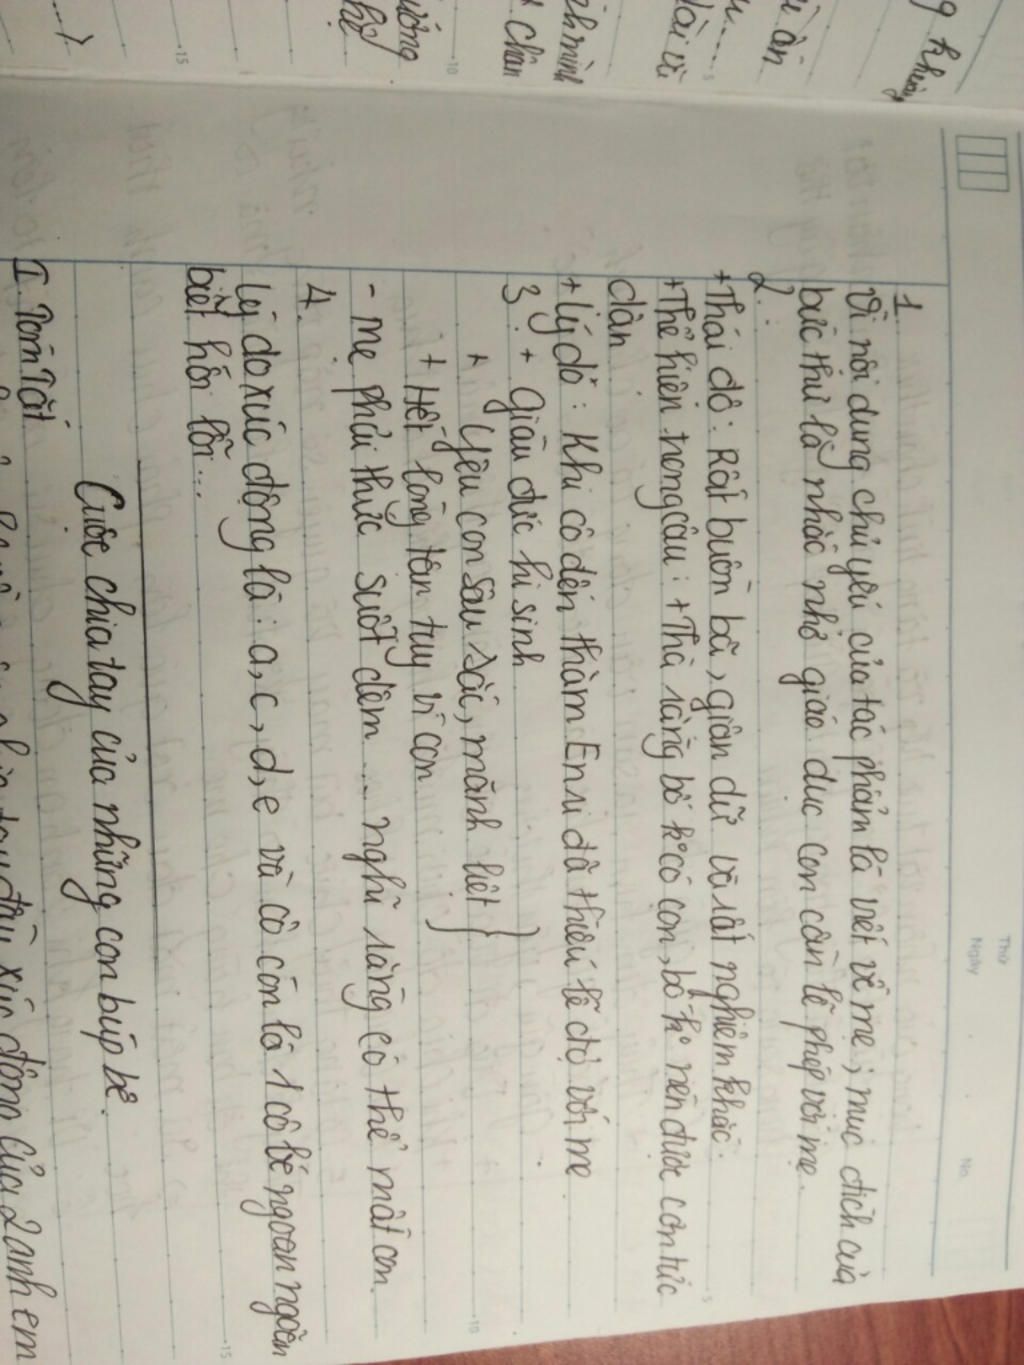 Thứ
Ngày
No.
1.
Vì nôi dung chủ yếu của tác phẩm là viết về mẹ; mục đích của
bức thư là nhắc nhở giáo dục con cần lễ phép với mẹ.
2.
+Thái dô: Rất buồn bã, giận dữ và rất nghiêm khắc.
+Thể hiện trong câu: +Thà rằng bố kº có con, bố kº nén được cơn tức
dân
+Lý do: Khi cô đến thăm Enri đã thiếu lễ độ với mẹ
3. + Giàu đức hi sinh
+ Yêu con sâu sắc, mãnh liệt
+ Hết lòng tận tụy vì con
- Mẹ phải thức suốt đêm... nghĩ rằng có thể mất con.
4.
Lý do xúc động là: a, c, d, e và cô còn là 1 cô bé ngoan ngoãn
biết hối lỗi...
Cuộc chia tay của những con búp bê.
I. Tóm Tắt
chia tay đầy xúc động của 2 anh em